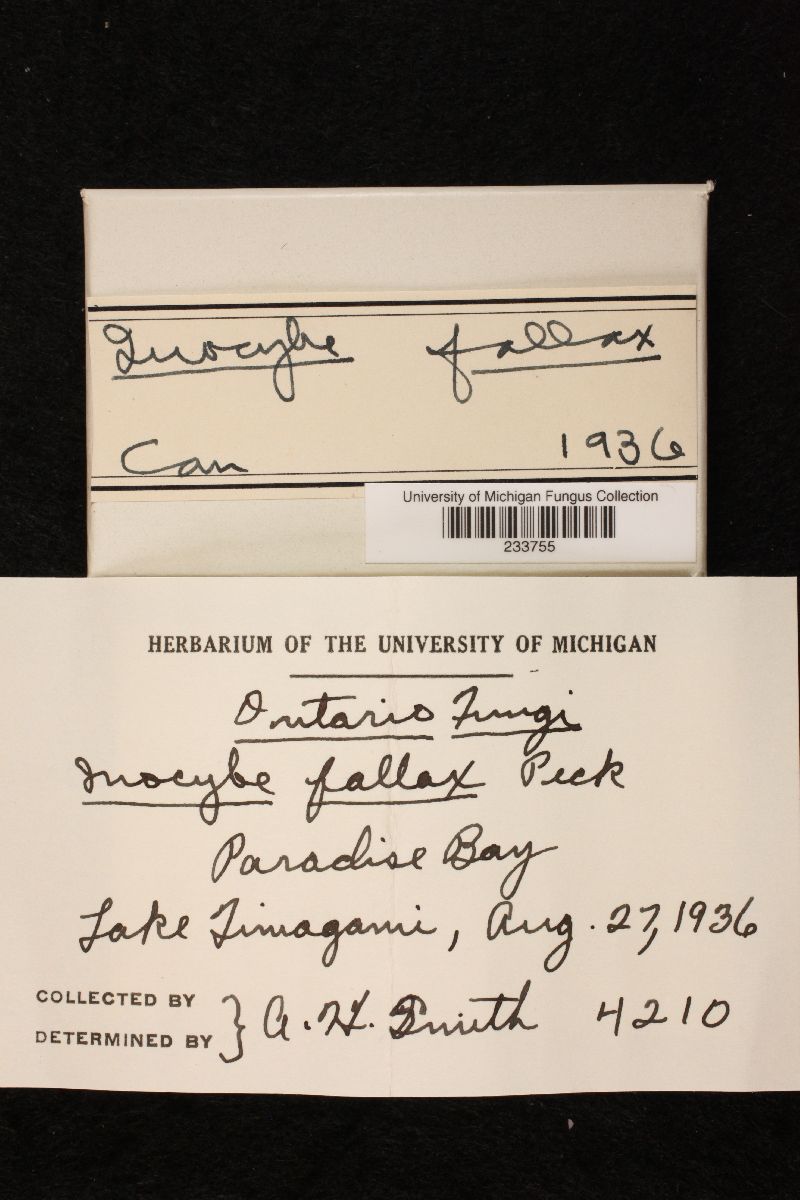 Inocybe fallax
Can 1936
University of Michigan Fungus Collection
233755
HERBARIUM OF THE UNIVERSITY OF MICHIGAN
Ontario Fungi
Inocybe fallax Peck
Paradise Bay
Lake Timagami, Aug. 27, 1936
COLLECTED BY
DETERMINED BY } A. H. Smith 4210